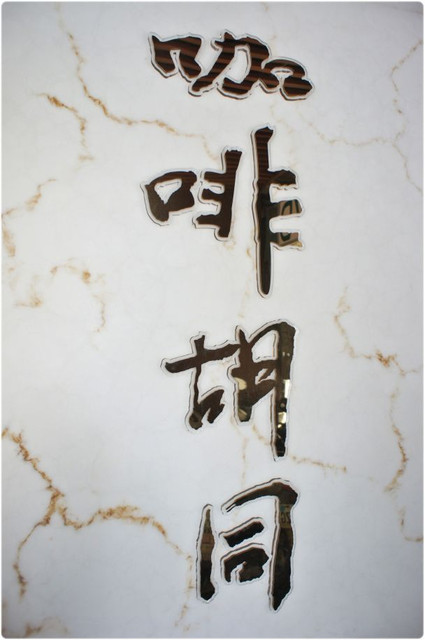 咖啡胡同